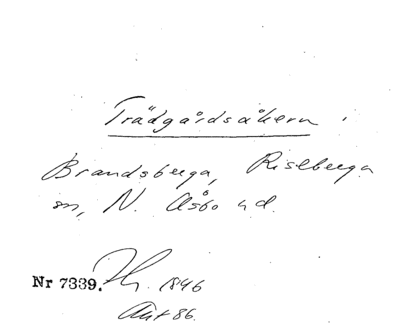 Trädgårdsåkern.
Brandsberga, Riseberga
sn, N. Åsbo hd.
Nr 7339. Hy. 1846
Akt 86.